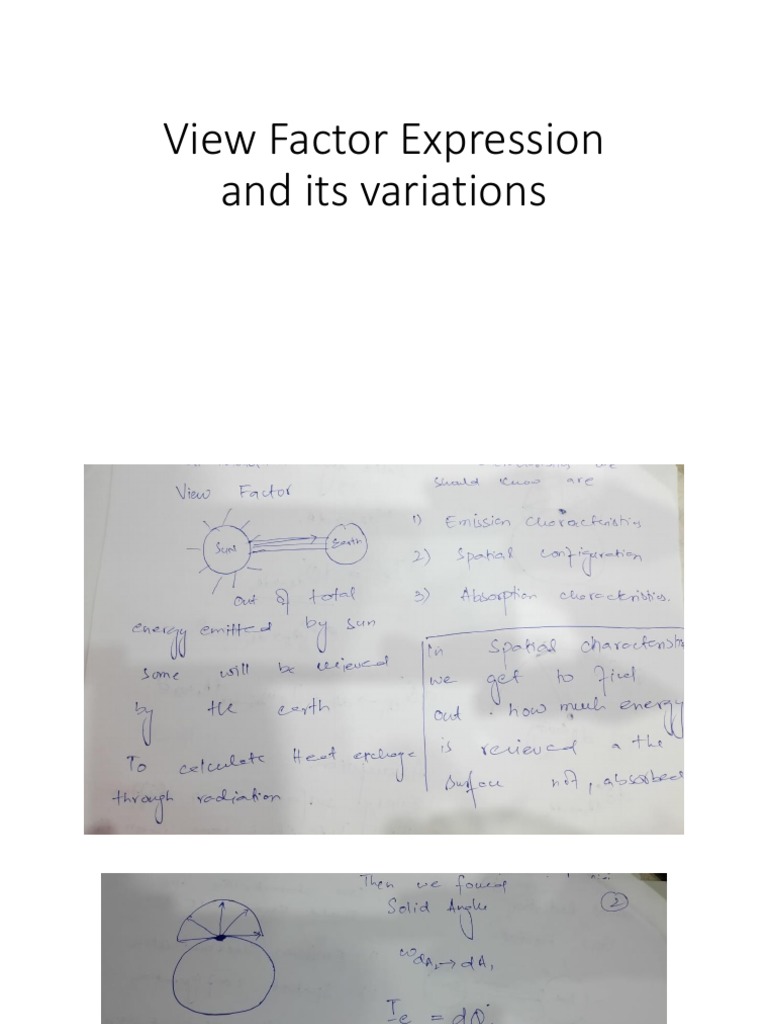 View Factor Expression
and its variations
View Factor
Sun
Earth
out of total
energy emitted by sun
some will be recieved
by the earth
To calculate Heat exchange
through radiation
should know are
1) Emission characteristics
2) Spatial configuration
3) Absorption characteristics.
In Spatial
we get to find
out how much energy
is recieved a the
surface not, absorbed
Then we found
Solid Angle
2
Ie = dQ